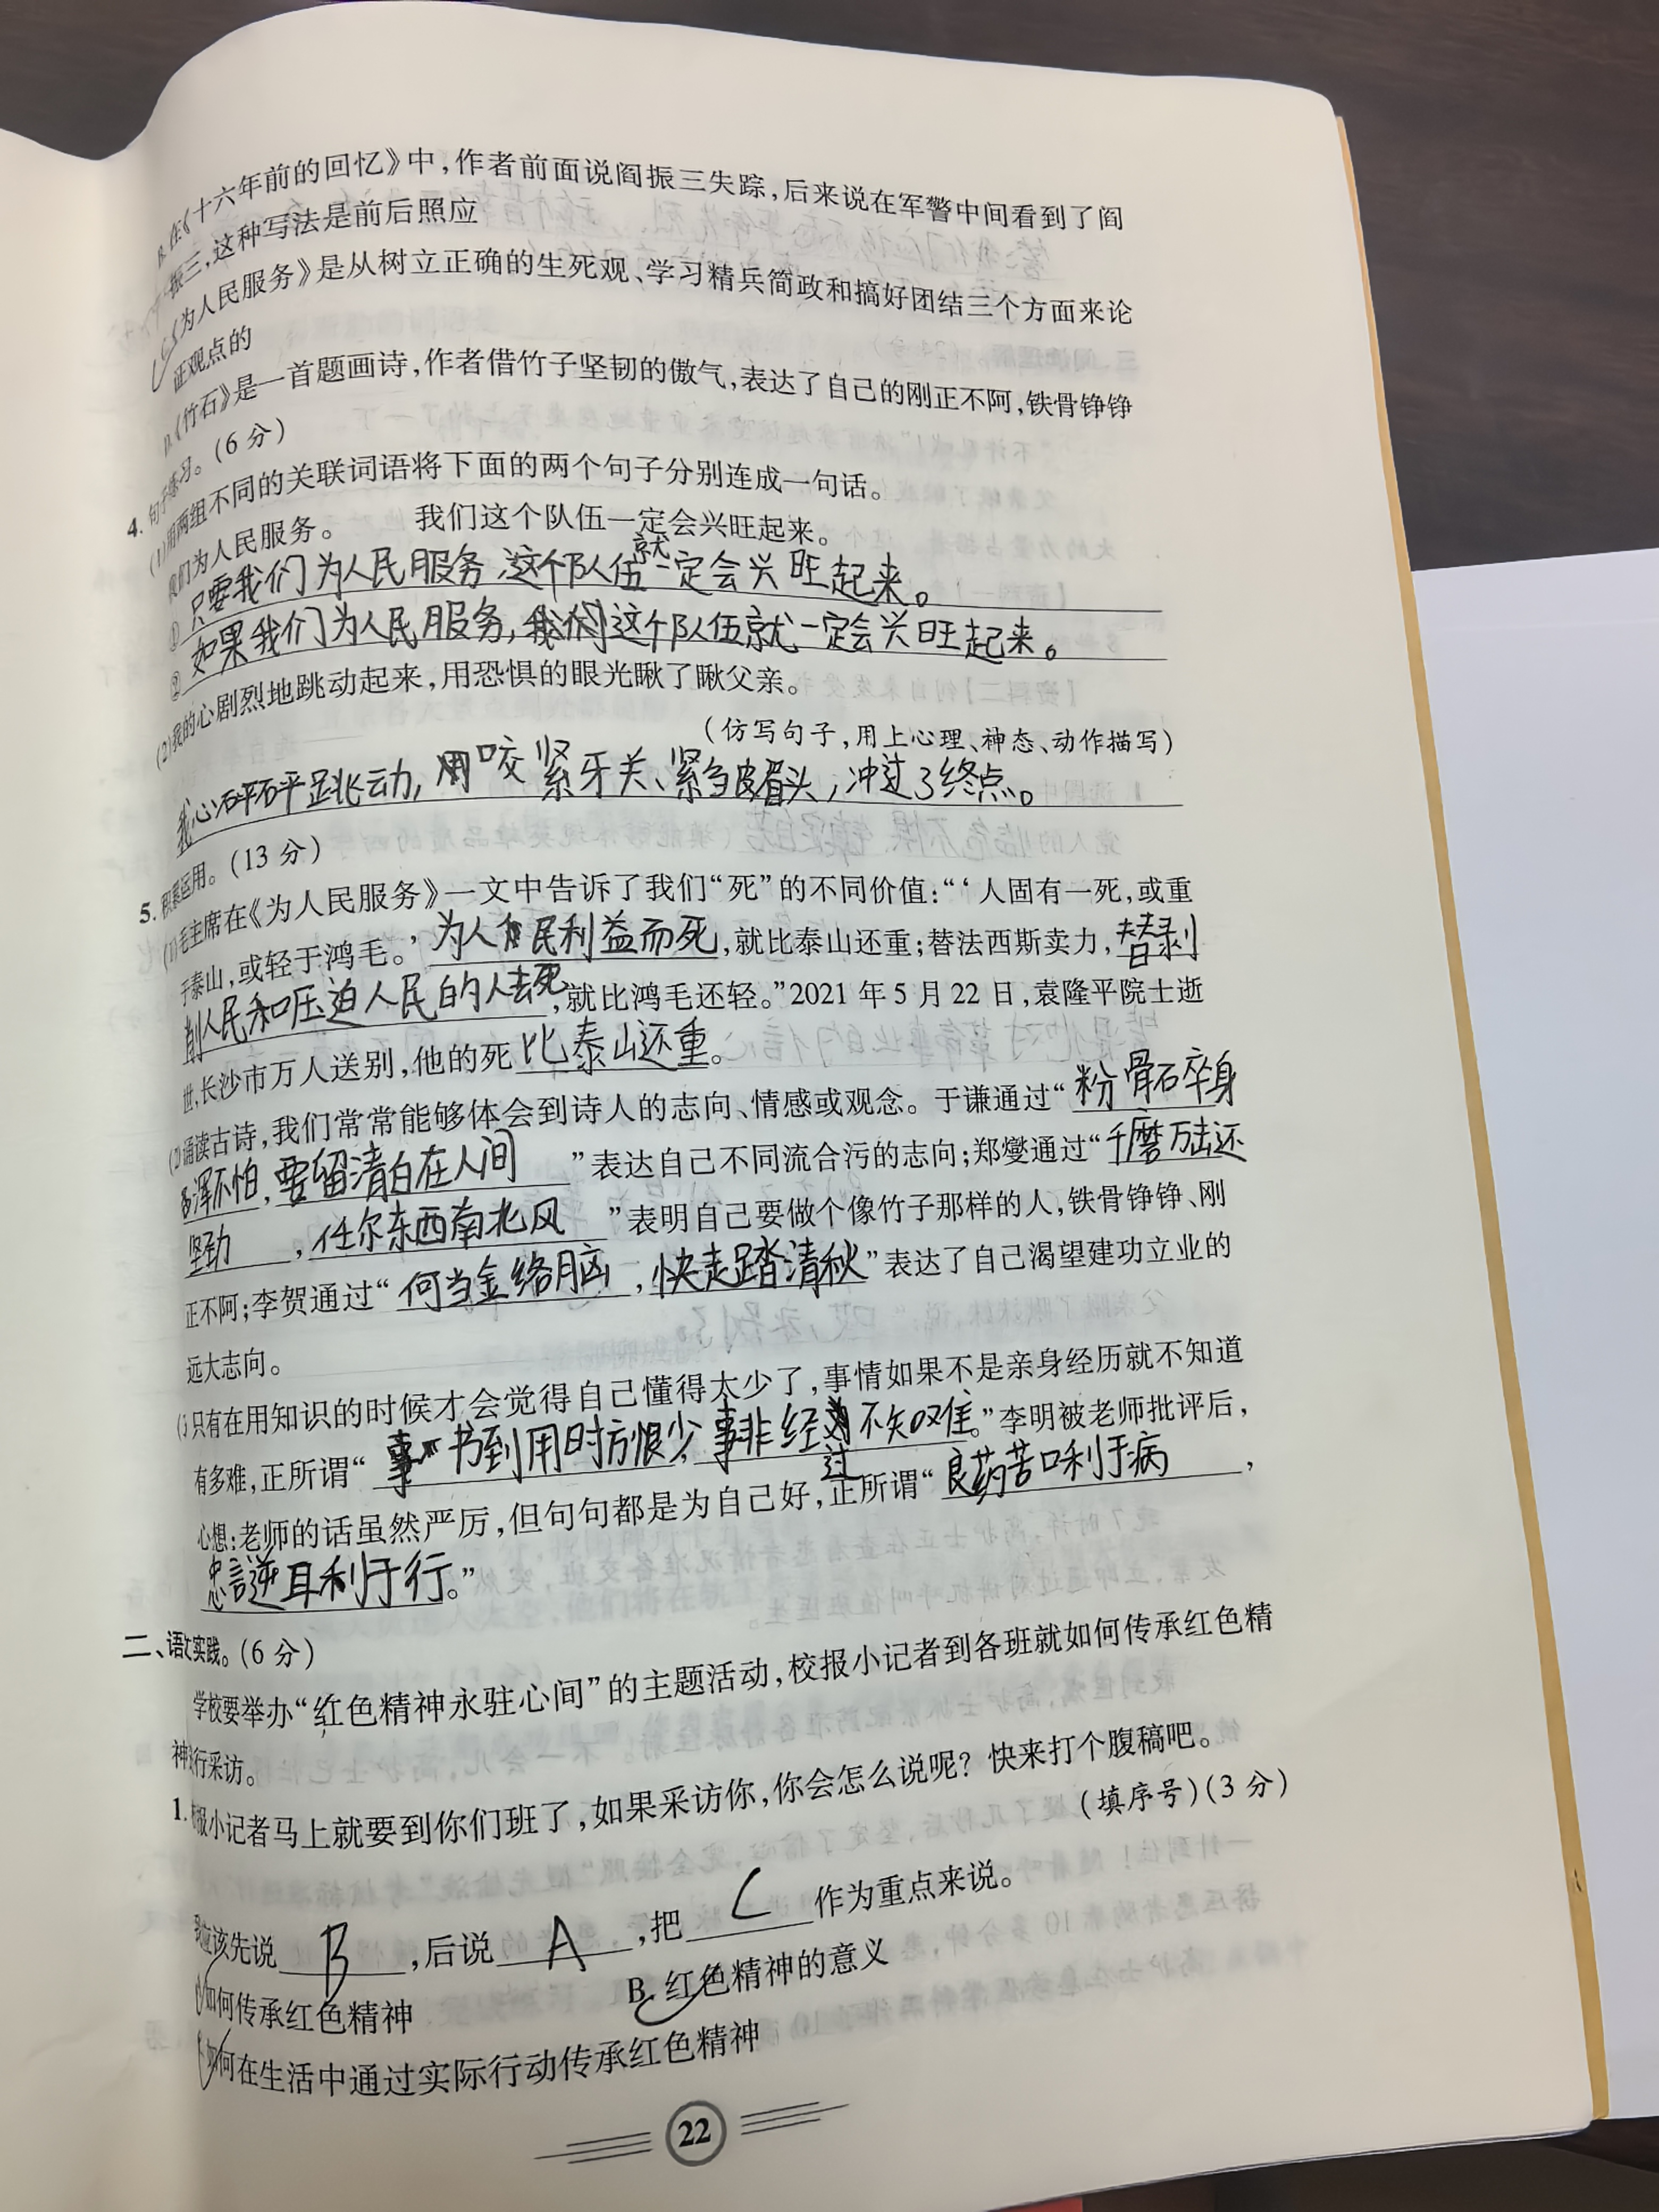 B.在《十六年前的回忆》中,作者前面说阎振三失踪,后来说在军警中间看到了阎
振三,这种写法是前后照应
C.《为人民服务》是从树立正确的生死观、学习精兵简政和搞好团结三个方面来论
证观点的
D.《竹石》是一首题画诗,作者借竹子坚韧的傲气,表达了自己的刚正不阿,铁骨铮铮
4.句子练习。(6分)
(1)用两组不同的关联词语将下面的两个句子分别连成一句话。
我们为人民服务。 我们这个队伍一定会兴旺起来。
①只要我们为人民服务,这个队伍就一定会兴旺起来。
②如果我们为人民服务,我们这个队伍就一定会兴旺起来。
(2)我的心剧烈地跳动起来,用恐惧的眼光瞅了瞅父亲。
(仿写句子,用上心理、神态、动作描写)
我心砰砰跳动,用咬紧牙关、紧皱眉头,冲过了终点。
5.积累运用。(13分)
(1)毛主席在《为人民服务》一文中告诉了我们“死”的不同价值:“‘人固有一死,或重
于泰山,或轻于鸿毛。’为人民利益而死,就比泰山还重;替法西斯卖力,替剥
削人民和压迫人民的人去死,就比鸿毛还轻。”2021年5月22日,袁隆平院士逝
世,长沙市万人送别,他的死比泰山还重。
(2)诵读古诗,我们常常能够体会到诗人的志向、情感或观念。于谦通过“粉骨碎身
浑不怕,要留清白在人间”表达自己不同流合污的志向;郑燮通过“千磨万击还
坚劲,任尔东西南北风”表明自己要做个像竹子那样的人,铁骨铮铮、刚
正不阿;李贺通过“何当金络脑,快走踏清秋”表达了自己渴望建功立业的
远大志向。
(3)只有在用知识的时候才会觉得自己懂得太少了,事情如果不是亲身经历就不知道
有多难,正所谓“书到用时方恨少,事非经过不知难。”李明被老师批评后,
心想:老师的话虽然严厉,但句句都是为自己好,正所谓“良药苦口利于病,
忠言逆耳利于行。”
二、语文实践。(6分)
学校要举办“红色精神永驻心间”的主题活动,校报小记者到各班就如何传承红色精
神进行采访。
1.校报小记者马上就要到你们班了,如果采访你,你会怎么说呢?快来打个腹稿吧。
(填序号)(3分)
我应该先说B,后说A,把C作为重点来说。
A.如何传承红色精神 B.红色精神的意义
C.如何在生活中通过实际行动传承红色精神
22